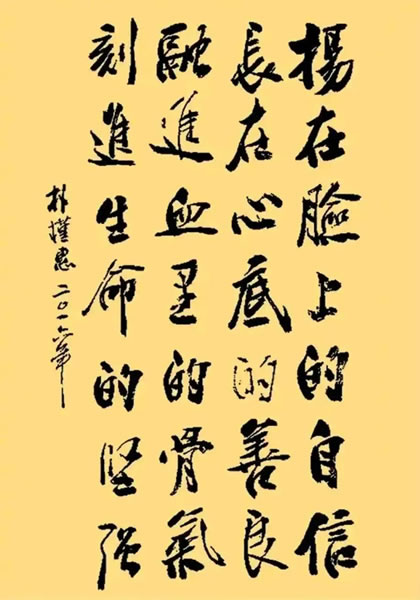 揚在臉上的自信
長在心底的善良
融進血里的骨氣
刻進生命的堅强
朴槿惠二〇一六年